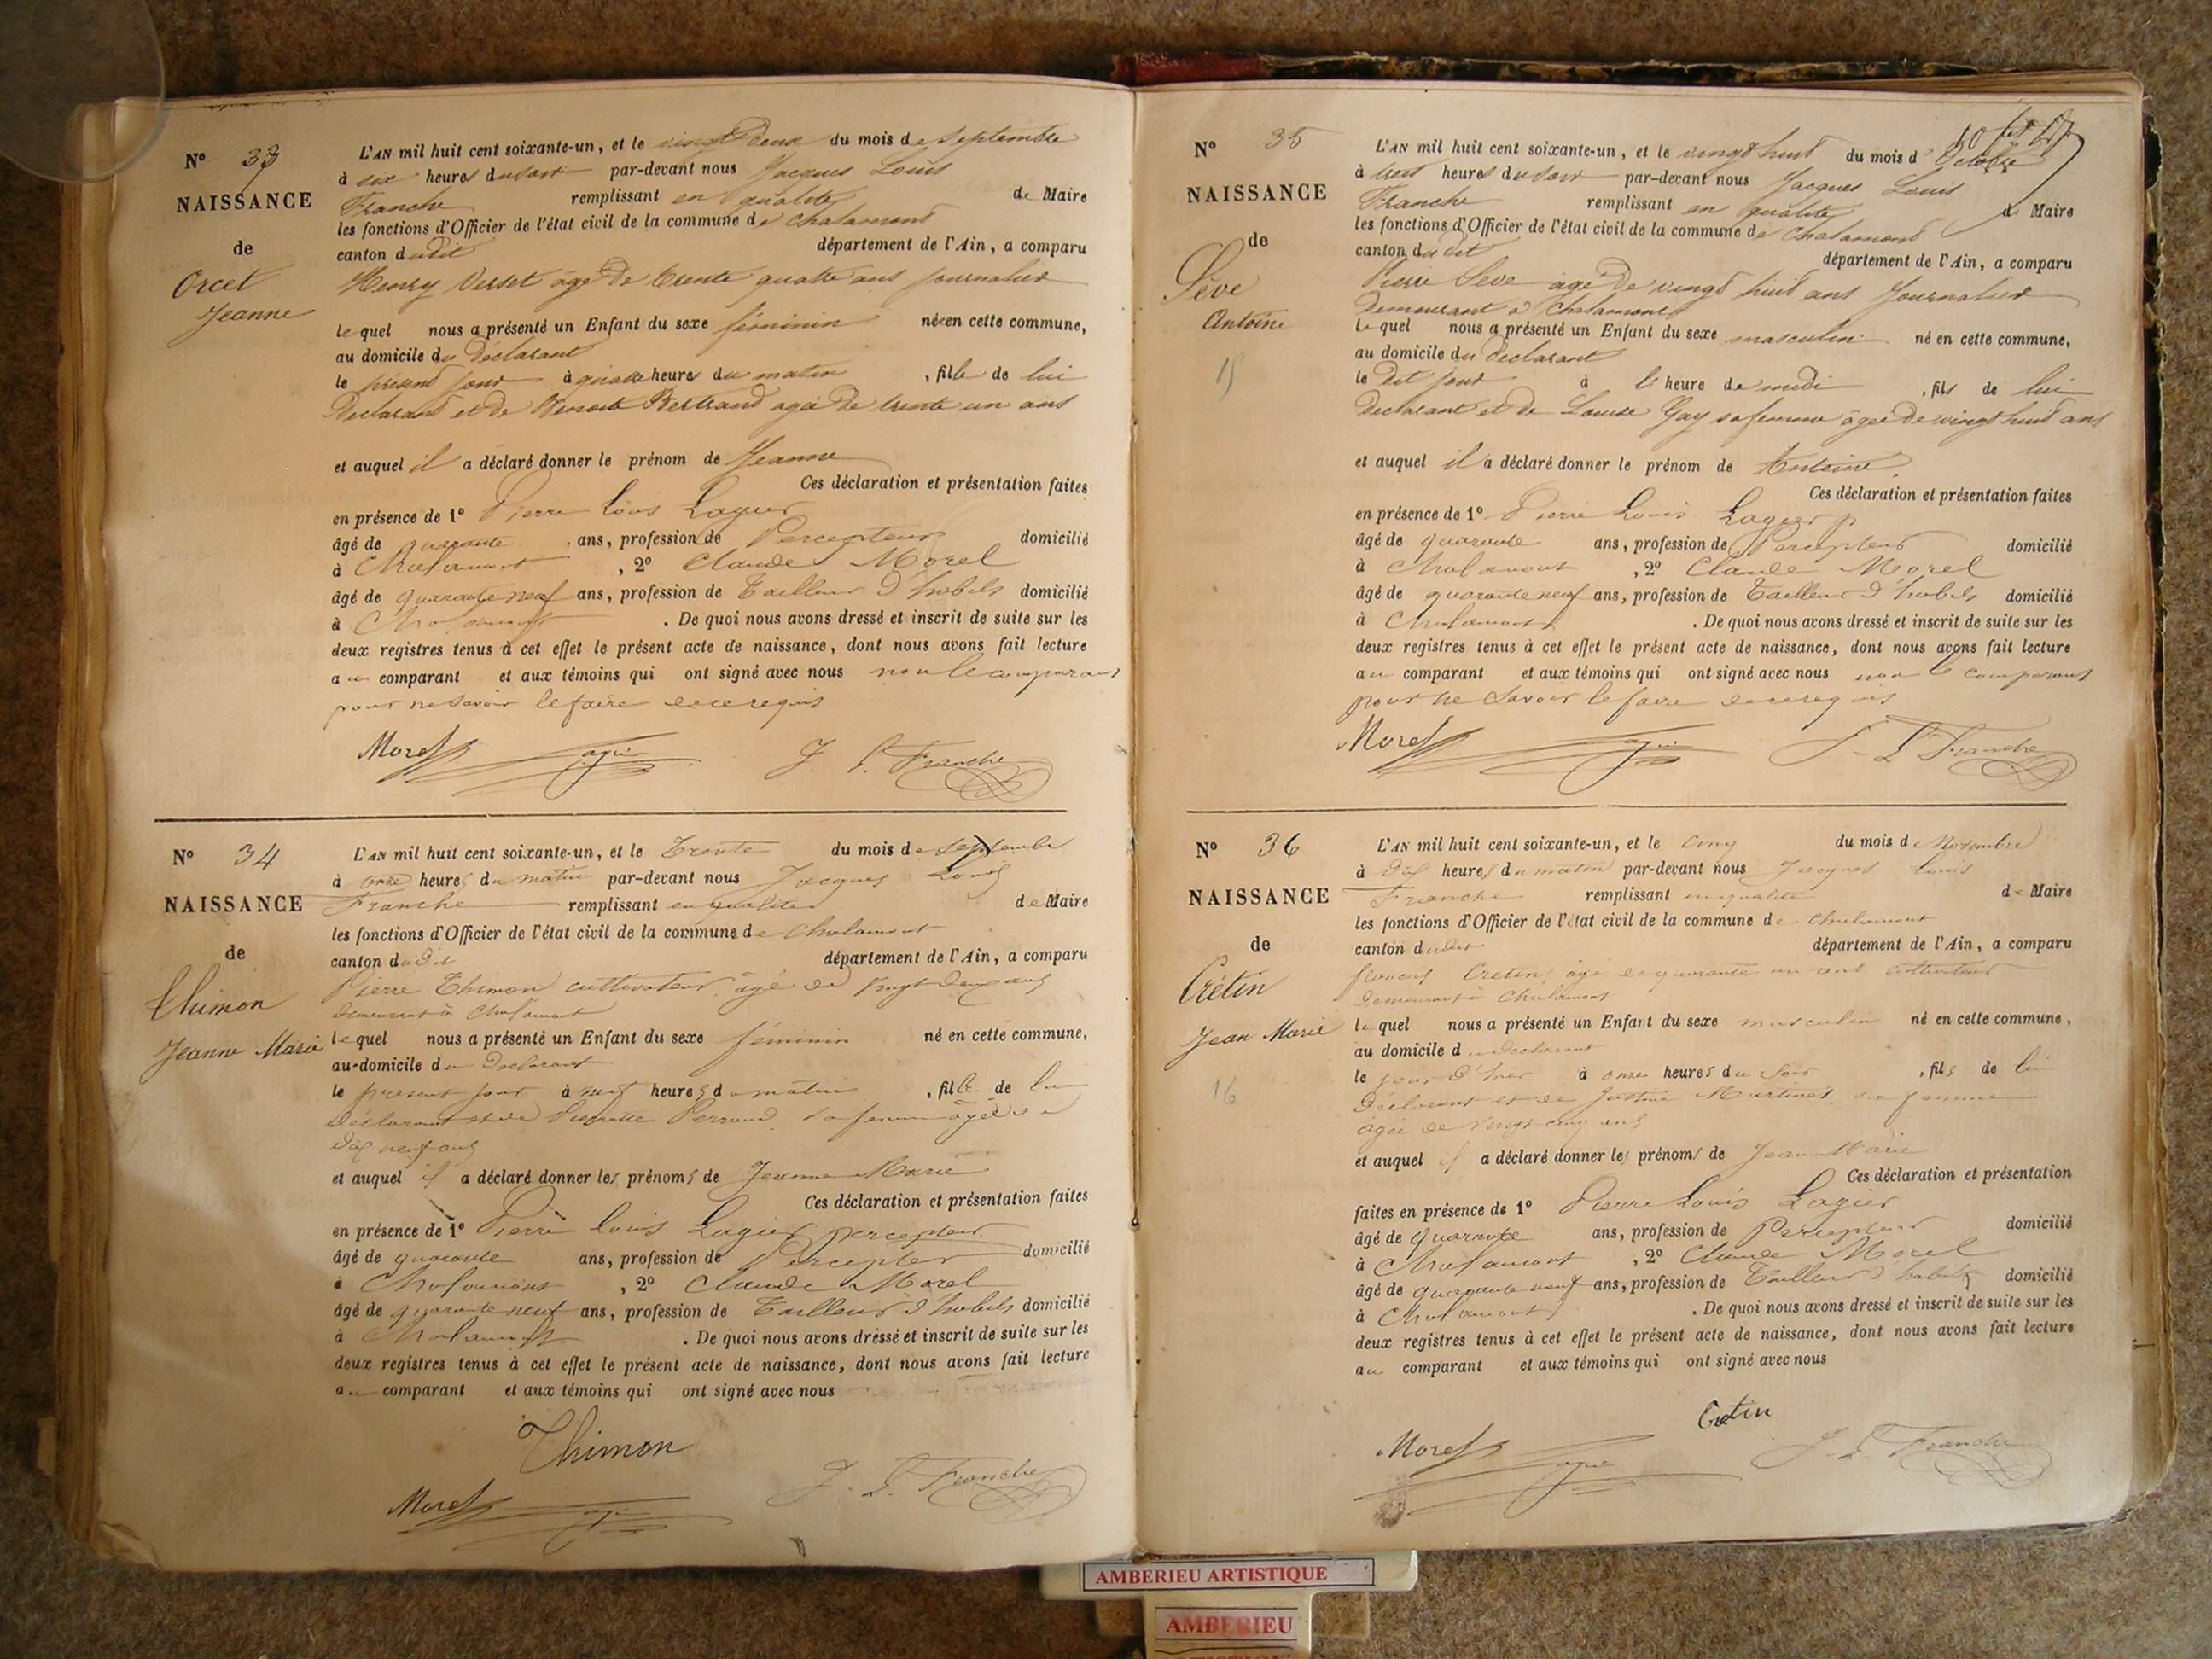 N° 33
NAISSANCE
de
Orcet
Jeanne
L'AN mil huit cent soixante-un, et le vingt deux du mois de Septembre
à six heures du soir par-devant nous Jacques Louis
Franche remplissant en qualité de Maire
les fonctions d'Officier de l'état civil de la commune de Chalamont
canton dudit département de l'Ain, a comparu
Henry Verset âgé de trente quatre ans journalier
lequel nous a présenté un Enfant du sexe féminin née en cette commune,
au domicile du Déclarant
le présent jour à quatre heures du matin, fille de lui
Déclarant et de Benoite Bertrand agée de trente un ans
et auquel il a déclaré donner le prénom de Jeanne
Ces déclaration et présentation faites
en présence de 1° Pierre Louis Lagier
âgé de quarante ans, profession de Percepteur domicilié
à Chalamont, 2° Claude Morel
âgé de quarante neuf ans, profession de Tailleur d'habits domicilié
à Chalamont. De quoi nous avons dressé et inscrit de suite sur les
deux registres tenus à cet effet le présent acte de naissance, dont nous avons fait lecture
au comparant et aux témoins qui ont signé avec nous non le comparant
pour ne savoir le faire de ce requis
Morel Lagier J. L. Franche
N° 34
NAISSANCE
de
Thimon
Jeanne Marie
L'AN mil huit cent soixante-un, et le Trente du mois de septembre
à onze heures du matin par-devant nous Jacques Louis
Franche remplissant en qualité de Maire
les fonctions d'Officier de l'état civil de la commune de Chalamont
canton dudit département de l'Ain, a comparu
Pierre Thimon cultivateur âgé de vingt deux ans
demeurant à Chalamont
lequel nous a présenté un Enfant du sexe féminin né en cette commune,
au domicile du Déclarant
le présent jour à neuf heures du matin, fille de lui
Déclarant et de Pierrette Perraud sa femme âgée de
dix neuf ans
et auquel il a déclaré donner les prénoms de Jeanne Marie
Ces déclaration et présentation faites
en présence de 1° Pierre Louis Lagier percepteur
âgé de quarante ans, profession de Percepteur domicilié
à Chalamont, 2° Claude Morel
âgé de quarante neuf ans, profession de Tailleur d'habits domicilié
à Chalamont. De quoi nous avons dressé et inscrit de suite sur les
deux registres tenus à cet effet le présent acte de naissance, dont nous avons fait lecture
au comparant et aux témoins qui ont signé avec nous
Thimon
Morel Lagier J. L. Franche
N° 35
NAISSANCE
de
Sève
Antoine
15
L'AN mil huit cent soixante-un, et le vingt huit du mois d'Octobre
à trois heures du soir par-devant nous Jacques Louis
Franche remplissant en qualité de Maire
les fonctions d'Officier de l'état civil de la commune de Chalamont
canton dudit département de l'Ain, a comparu
Pierre Seve âgé de vingt huit ans Journalier
Demeurant à Chalamont
lequel nous a présenté un Enfant du sexe masculin né en cette commune,
au domicile du Déclarant
le dit jour à l'heure de midi, fils de lui
Déclarant et de Louise Gay sa femme âgée de vingt huit ans
et auquel il a déclaré donner le prénom de Antoine
Ces déclaration et présentation faites
en présence de 1° Pierre Louis Lagier
âgé de quarante ans, profession de Percepteur domicilié
à Chalamont, 2° Claude Morel
âgé de quarante neuf ans, profession de Tailleur d'habits domicilié
à Chalamont. De quoi nous avons dressé et inscrit de suite sur les
deux registres tenus à cet effet le présent acte de naissance, dont nous avons fait lecture
au comparant et aux témoins qui ont signé avec nous non le comparant
pour ne savoir le faire de ce requis
Morel Lagier J. L. Franche
N° 36
NAISSANCE
de
Crétin
Jean Marie
16
L'AN mil huit cent soixante-un, et le cinq du mois de Novembre
à dix heures du matin par-devant nous Jacques Louis
Franche remplissant en qualité de Maire
les fonctions d'Officier de l'état civil de la commune de Chalamont
canton dudit département de l'Ain, a comparu
françois Crétin âgé de quarante un ans cultivateur
Demeurant à Chalamont
lequel nous a présenté un Enfant du sexe masculin né en cette commune,
au domicile du déclarant
le jour d'hier à onze heures du soir, fils de lui
Déclarant et de Justine Martinet sa femme
âgée de vingt cinq ans
et auquel il a déclaré donner les prénoms de Jean Marie
Ces déclaration et présentation
faites en présence de 1° Pierre Louis Lagier
âgé de quarante ans, profession de Percepteur domicilié
à Chalamont, 2° Claude Morel
âgé de quarante neuf ans, profession de Tailleur d'habits domicilié
à Chalamont. De quoi nous avons dressé et inscrit de suite sur les
deux registres tenus à cet effet le présent acte de naissance, dont nous avons fait lecture
au comparant et aux témoins qui ont signé avec nous
Cretin
Morel Lagier J. L. Franche
AMBERIEU ARTISTIQUE
AMBERIEU